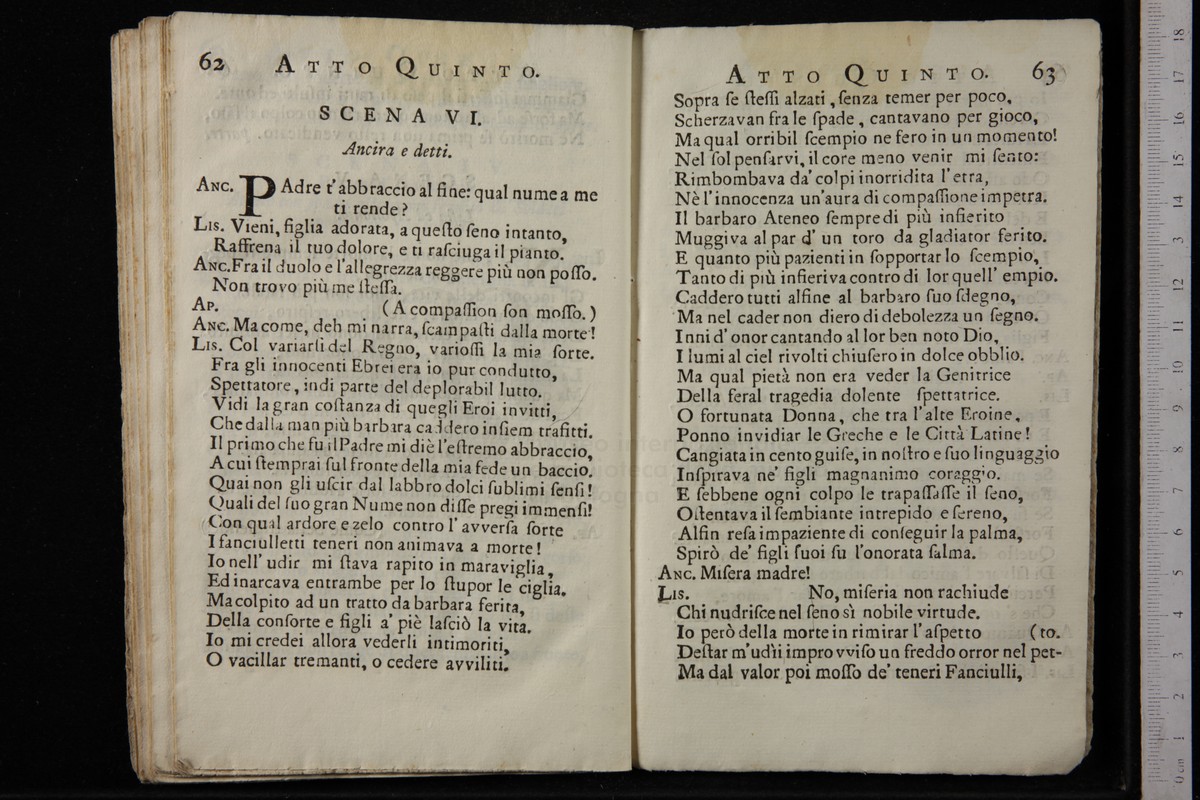 62 ATTO QUINTO.
SCENA VI.
Ancira e detti.
ANC. PAdre t'abbraccio al fine: qual nume a me
ti rende?
LIS. Vieni, figlia adorata, a queſto ſeno intanto,
Raffrena il tuo dolore, e ti raſciuga il pianto.
ANC. Fra il duolo e l'allegrezza reggere più non poſſo.
Non trovo più me ſteſſa.
AP. (A compaſſion ſon moſſo.)
ANC. Ma come, deh mi narra, ſcampaſti dalla morte!
LIS. Col variarſi del Regno, varioſſi la mia ſorte.
Fra gli innocenti Ebrei era io pur condutto,
Spettatore, indi parte del deplorabil lutto.
Vidi la gran coſtanza di quegli Eroi invitti,
Che dalla man più barbara caddero inſiem trafitti.
Il primo che fu il Padre mi diè l'eſtremo abbraccio,
A cui ſtemprai ſul fronte della mia fede un baccio.
Quai non gli uſcir dal labbro dolci ſublimi ſenſi!
Quali del ſuo gran Nume non diſſe pregi immenſi!
Con qual ardore e zelo contro l'avverſa ſorte
I fanciulletti teneri non animava a morte!
Io nell'udir mi ſtava rapito in maraviglia,
Ed inarcava entrambe per lo ſtupor le ciglia.
Ma colpito ad un tratto da barbara ferita,
Della conſorte e figli a' piè laſciò la vita.
Io mi credei allora vederli intimoriti,
O vacillar tremanti, o cedere avviliti.
ATTO QUINTO. 63
Sopra ſe ſteſſi alzati, ſenza temer per poco,
Scherzavan fra le ſpade, cantavano per gioco,
Ma qual orribil ſcempio ne fero in un momento!
Nel ſol penſarvi, il core meno venir mi ſento:
Rimbombava da' colpi inorridita l'etra,
Nè l'innocenza un'aura di compaſſione impetra.
Il barbaro Ateneo ſempre di più infierito
Muggiva al par d' un toro da gladiator ferito.
E quanto più pazienti in ſopportar lo ſcempio,
Tanto di più infieriva contro di lor quell' empio.
Caddero tutti alfine al barbaro ſuo ſdegno,
Ma nel cader non diero di debolezza un ſegno.
Inni d' onor cantando al lor ben noto Dio,
I lumi al ciel rivolti chiuſero in dolce obblio.
Ma qual pietà non era veder la Genitrice
Della feral tragedia dolente ſpettatrice.
O fortunata Donna, che tra l'alte Eroine,
Ponno invidiar le Greche e le Città Latine!
Cangiata in cento guiſe, in noſtro e ſuo linguaggio
Inſpirava ne' figli magnanimo coraggio.
E ſebbene ogni colpo le trapaſſaſſe il ſeno,
Oſtentava il ſembiante intrepido e ſereno,
Alfin reſa impaziente di conſeguir la palma,
Spirò de' figli ſuoi ſu l'onorata ſalma.
ANC. Miſera madre!
LIS. No, miſeria non rachiude
Chi nudriſce nel ſeno sì nobile virtude.
Io però della morte in rimirar l'aſpetto (to.
Deſtar m'udìi improvviſo un freddo orror nel pet-
Ma dal valor poi moſſo de' teneri Fanciulli,